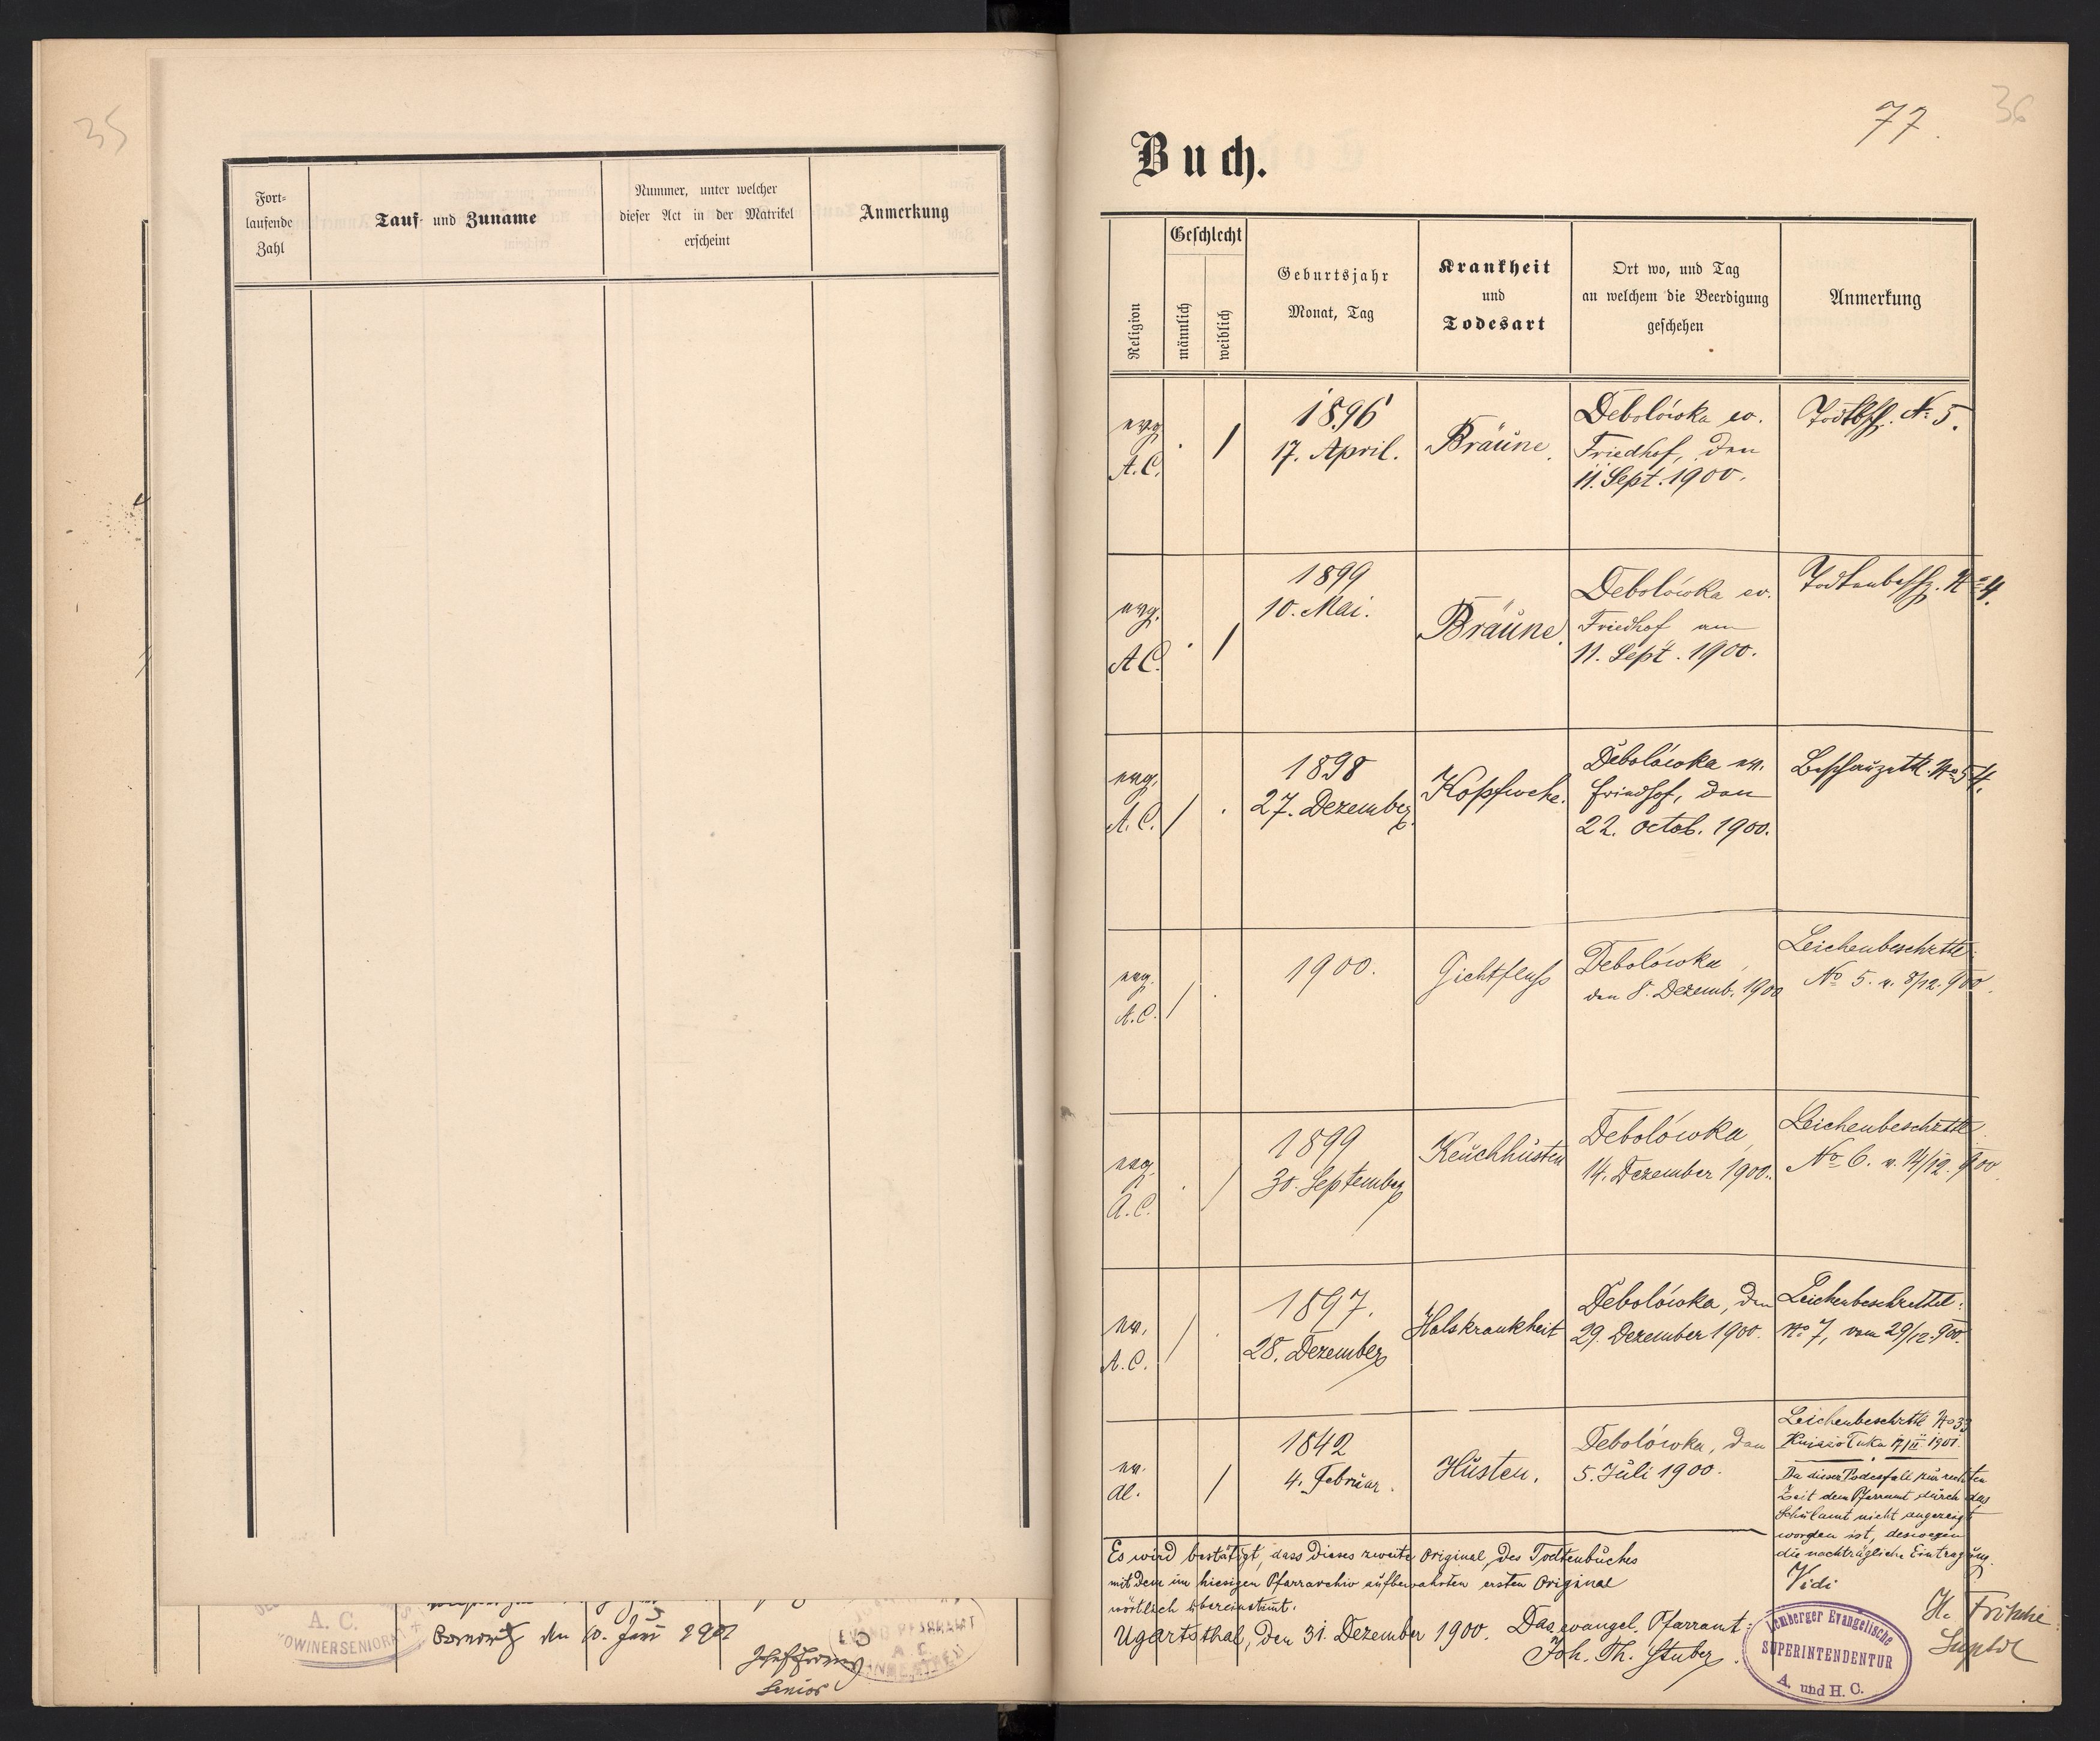 35
Fort-
laufende
Zahl
Tauf- und Zuname
Nummer, unter welcher
dieser Act in der Matrikel
erscheint
Anmerkung
A. C.
OWINERSENIORAT
den 10. Juni 1901
Senior
77.
36
Buch.
Religion
Geschlecht
männlich
weiblich
Geburtsjahr
Monat, Tag
Krankheit
und
Todesart
Ort wo, und Tag
an welchem die Beerdigung
geschehen
Anmerkung
evg.
A.C.
. /
1896
17. April.
Bräune.
Debolówka ev.
Friedhof, den
11. Sept. 1900.
No 5.
evg.
A C.
. /
1899
10. Mai.
Bräune.
Debolówka ev.
Friedhof am
11. Sept. 1900.
No 4.
evg.
A.C.
/ .
1898
27. Dezember
Kopfwehe.
Debolówka ev.
Friedhof, den
22. Octob. 1900.
Beschauzettl.
evg.
A.C.
/ .
1900.
Gichtfluß
Debolówka,
den 8. Dezemb. 1900
Leichenbeschzttl
No 5. v. 8/12. 900.
evg.
A.C.
. /
1899
30. September
Keuchhusten
Debolówka,
14. Dezember 1900.
Leichenbeschzttl
No 6. v. 14/12. 900.
ev.
A.C.
/ .
1897.
28. Dezember
Halskrankheit
Debolówka, den
29. Dezember 1900.
Leichenbeschzettel:
No 7, vom 29/12. 900.
ev.
/
1842
4. Februar.
Husten.
Debolówka, den
5. Juli 1900.
Leichenbeschzttl No 33
17/II 1901.
Da dieser Todesfall zur rechten
Zeit dem Pfarramt durch das
Schulamt nicht angezeigt
worden ist, deswegen
die nachträgliche Eintragung.
Es wird bestätigt, dass dieses zweite Original des Todtenbuches
mit dem im hiesigen Pfarrarchiv aufbewahrten ersten Original
wörtlich übereinstimt.
Ugartsthal, den 31. Dezember 1900. Das evangel. Pfarramt:
Joh. Th. Stuber.
Vidi
Lemberger Evangelische
SUPERINTENDENTUR
A. und H. C.